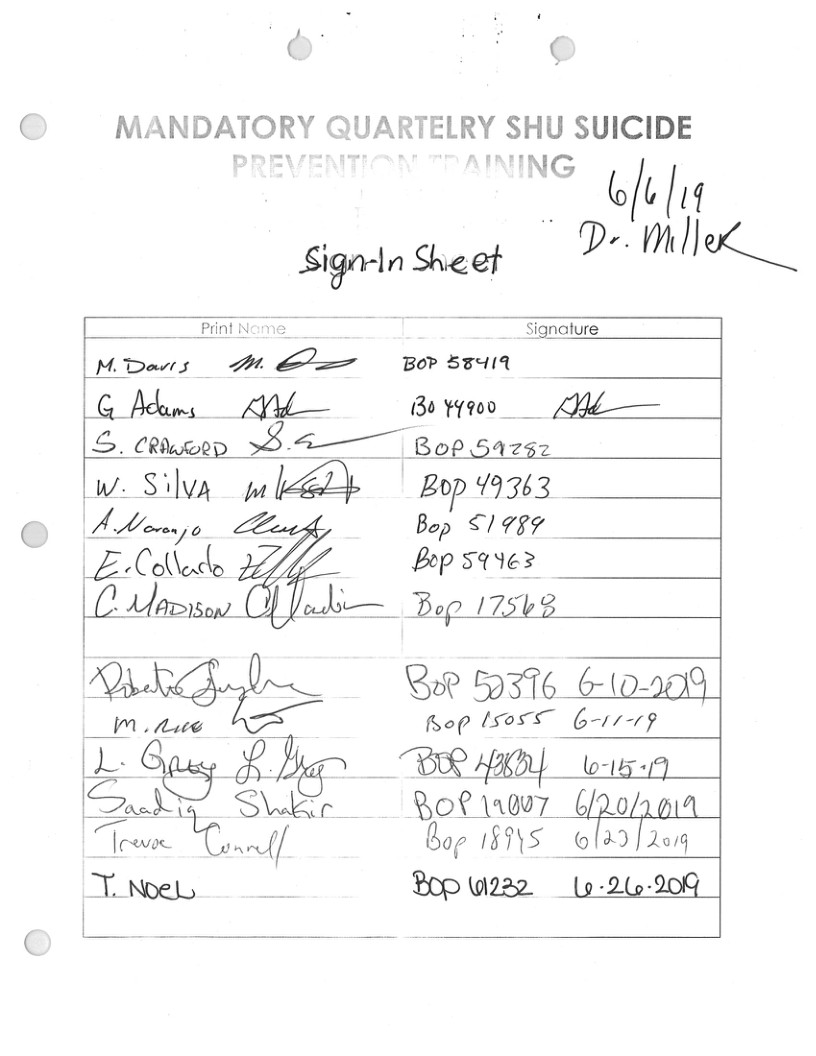 MANDATORY QUARTELRY SHU SUICIDE
PREVENTION TRAINING
6/6/19
Dr. Miller
Sign-In Sheet
Print Name Signature
M. Davis BOP 58419
G Adams BO 44900
S. CRAWFORD BOP 59282
W. SilVA BOP 49363
A. Naranjo Bop 51989
E. Collado BOP 59463
C. MADISON Bop 17568
Roberto BOP 50396 6-10-2019
M. RICE BOP 15055 6-11-19
L. Gray L. Gray BOP 43834 6-15-19
Saadiq Shakir BOP 19007 6/20/2019
Trevor Connell Bop 18945 6/23/2019
T. NOEL BOP 61232 6-26-2019